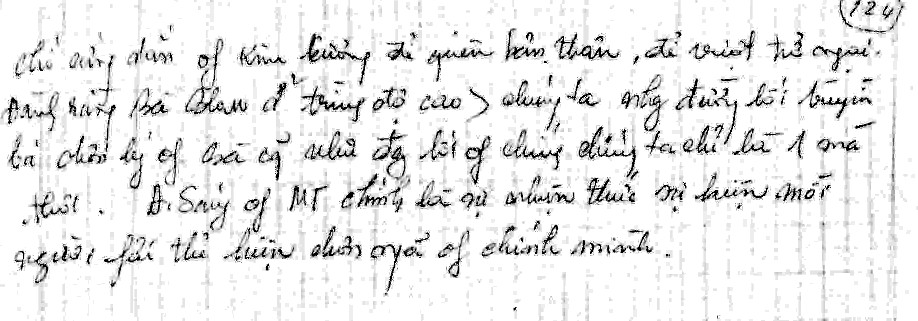 124
chỗ cứng dắn of Kim cương để quên bản thân, để vượt trở ngại.
bà ta ở từng độ cao > chúng ta nhg đường lối truyền
bá chân lý of bà cg như đg lối of chúng chúng ta chỉ là 1 mà
thôi. A. Sáng of MT chính là sự nhận thức sự hiện mỗi
người fải thể hiện chân ngã of chính mình.